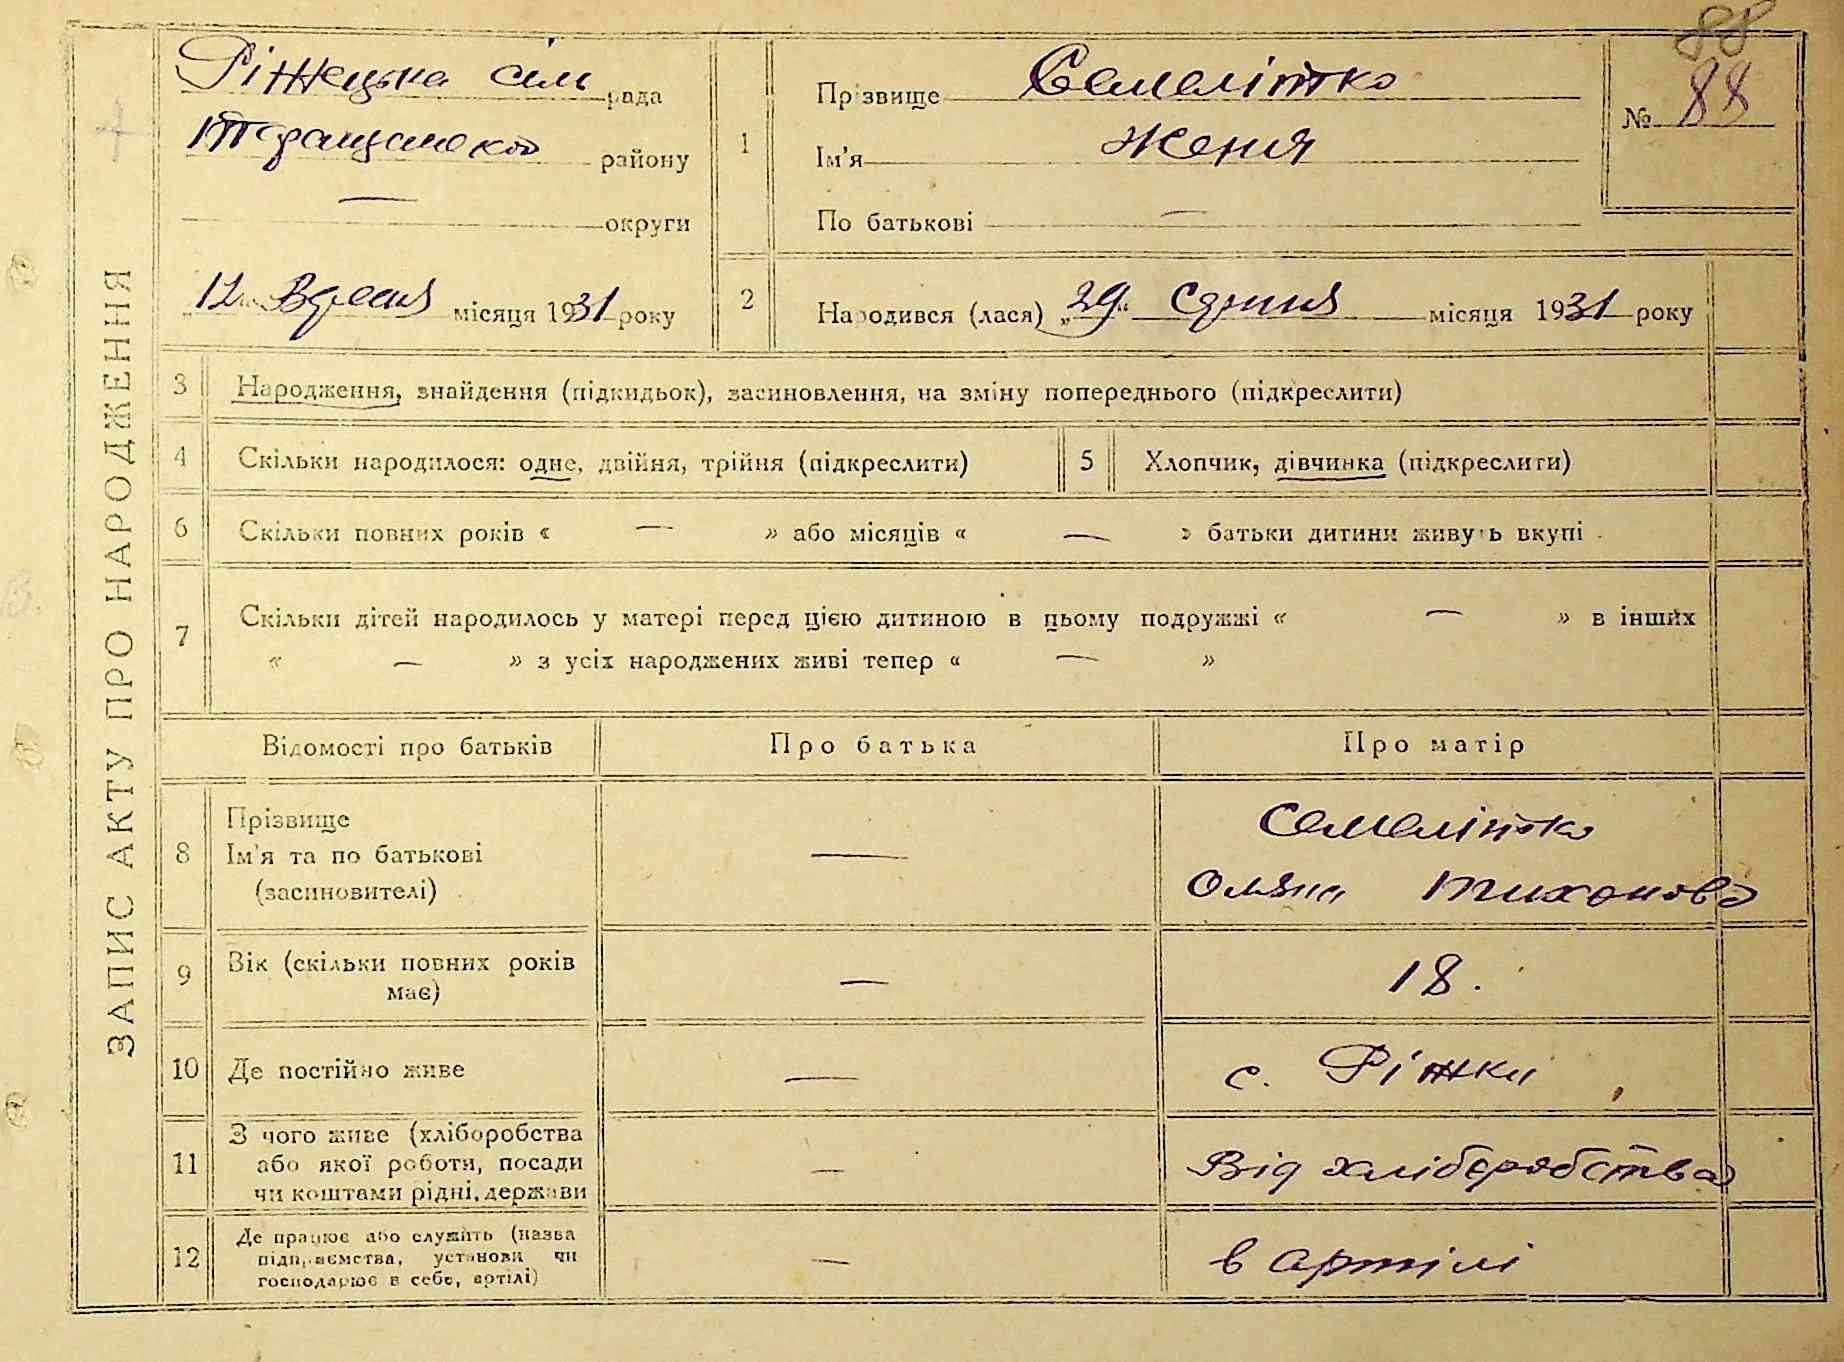 88
Ріжецька сіль рада
Таращанського району
— округи
„12“ Вресня місяця 1931 року
1 Прізвище Семелітко
Ім'я Женя
По батькові —
№ 88
2 Народився (лася) „29“ Серпня місяця 1931 року
ЗАПИС АКТУ ПРО НАРОДЖЕННЯ
3 Народження, знайдення (підкидьок), засиновлення, на зміну попереднього (підкреслити)
4 Скільки народилося: одне, двійня, трійня (підкреслити)
5 Хлопчик, дівчинка (підкреслити)
6 Скільки повних років « — » або місяців « — » батьки дитини живуть вкупі
7 Скільки дітей народилось у матері перед цією дитиною в цьому подружжі « — » в інших
« — » з усіх народжених живі тепер « — »
Відомості про батьків Про батька Про матір
8 Прізвище
Ім'я та по батькові
(засиновителі)
—
Семелітко
Оляна Тихонова
9 Вік (скільки повних років
має)
—
18.
10 Де постійно живе — с. Ріжки
11 З чого живе (хліборобства
або якої роботи, посади
чи коштами рідні, держави
—
Від хліборобства
12 Де працює або служить (назва
підприємства, установи чи
господарює в себе, артілі)
—
в артілі